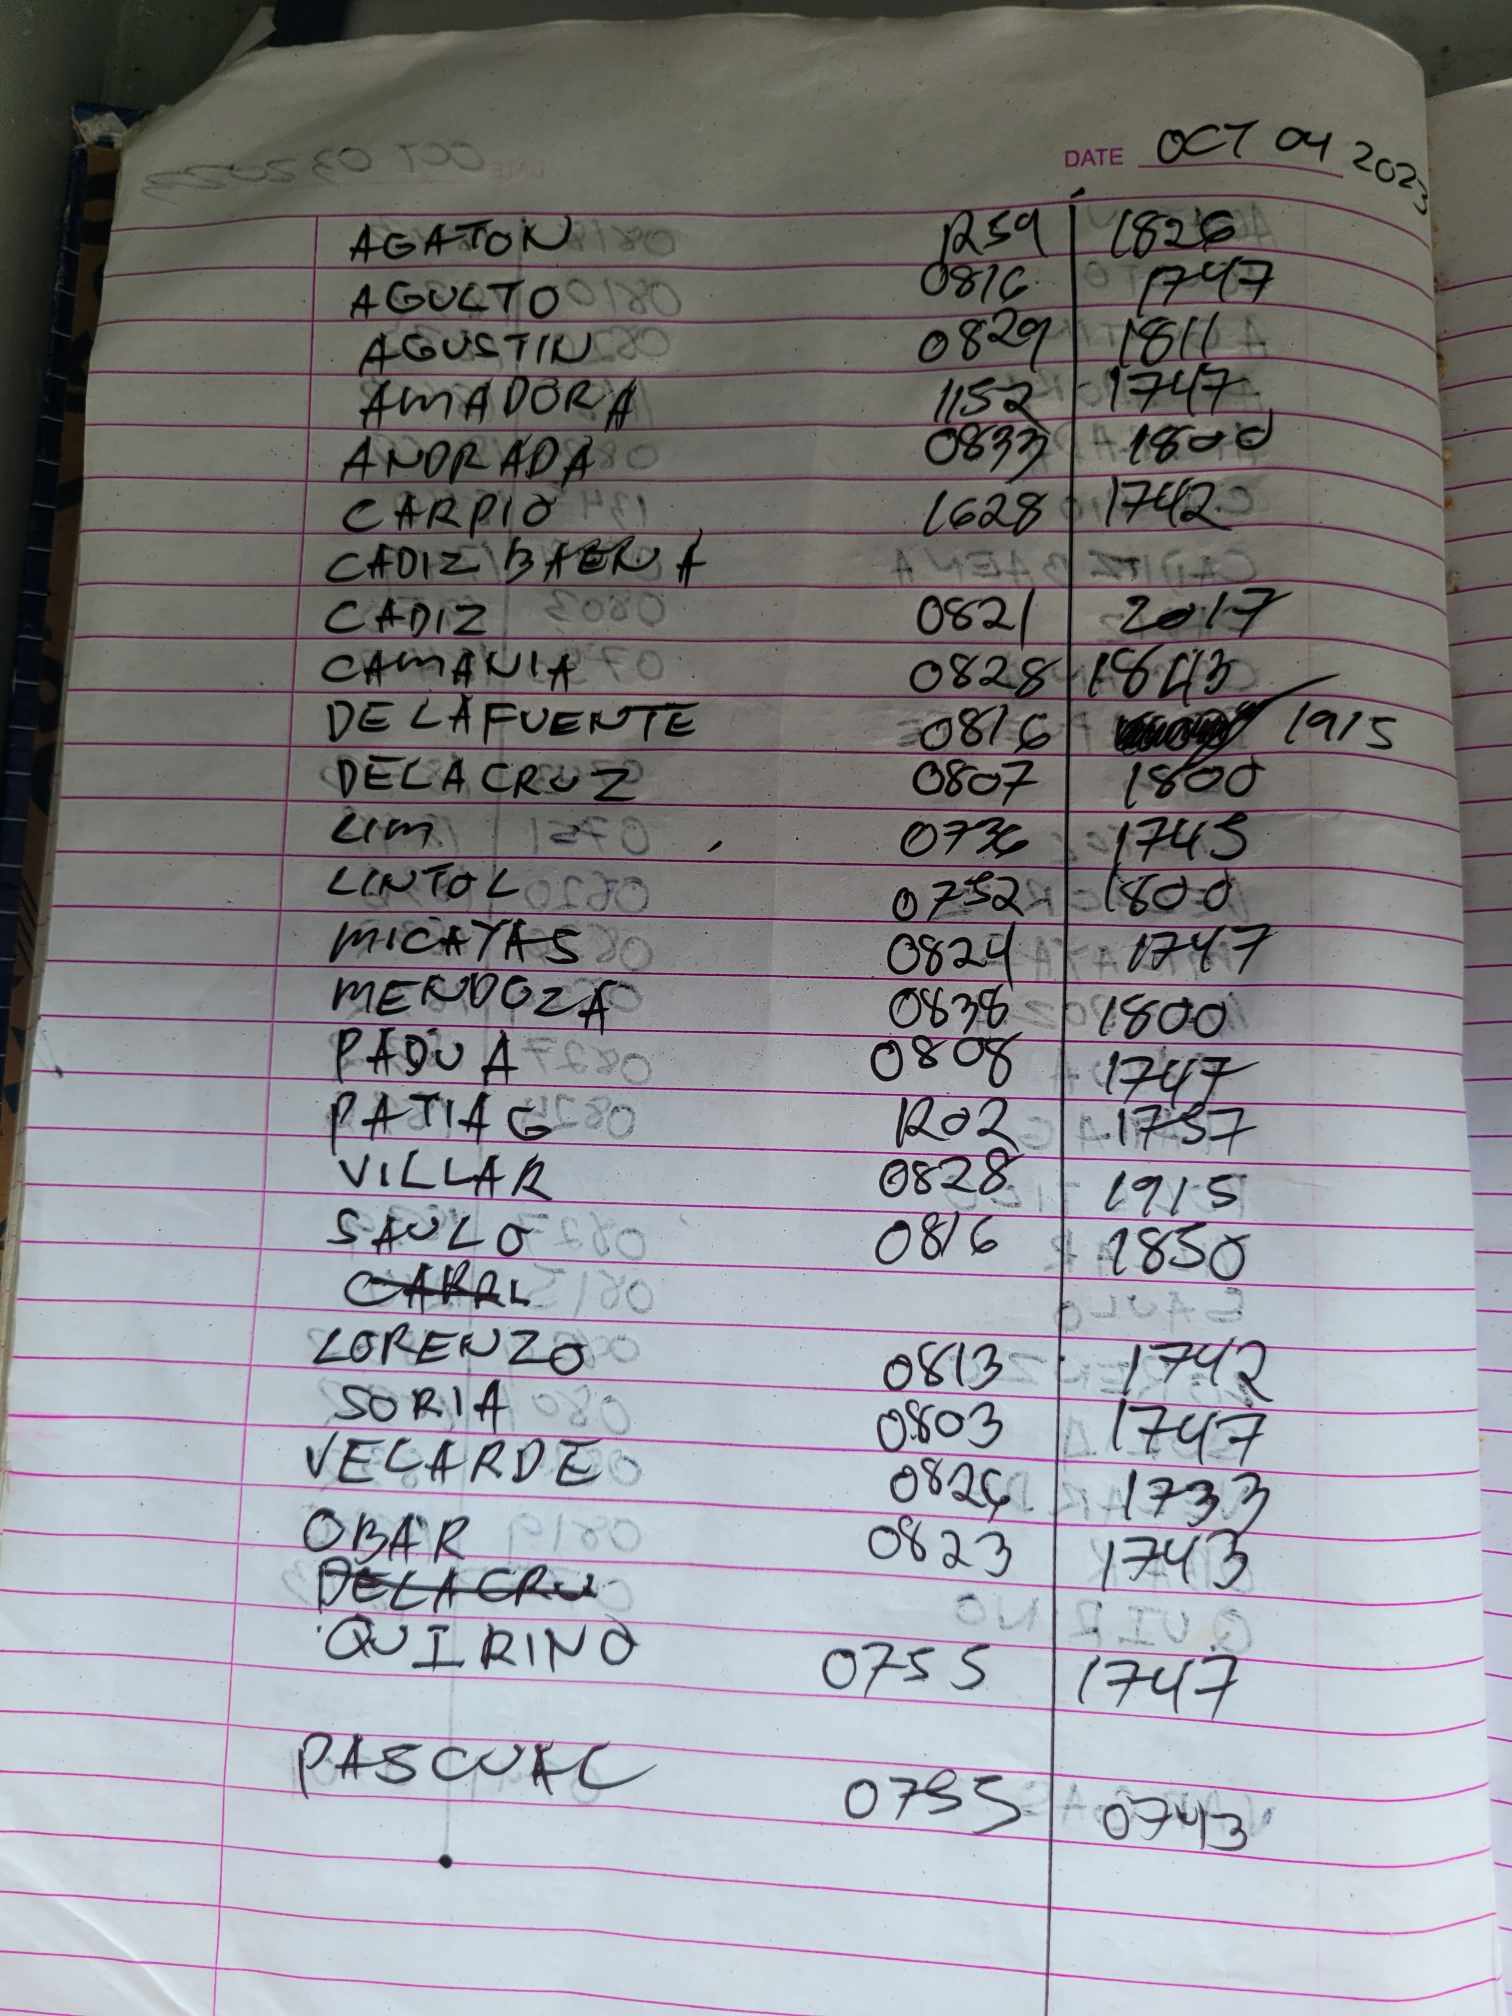 DATE OCT 04 2023
AGATON 1259 1826
AGULTO 0816 1747
AGUSTIN 0829 1811
AMADORA 1152 1747
ANDRADA 0833 1800
CARPIO 1628 1742
CADIZ BAENA
CADIZ 0821 2017
CAMANIA 0828 1843
DELAFUENTE 0816 1915
DELACRUZ 0807 1800
LIM 0736 1745
LINTOL 0752 1800
MICAYAS 0824 1747
MENDOZA 0838 1800
PADUA 0808 1747
PATIAG 1202 1757
VILLAR 0828 1915
SAULO 0816 1850
LORENZO 0813 1742
SORIA 0803 1747
VELARDE 0826 1733
OBAR 0823 1743
DELACRU
QUIRINO 0755 1747
PASCUAL 0755 0743